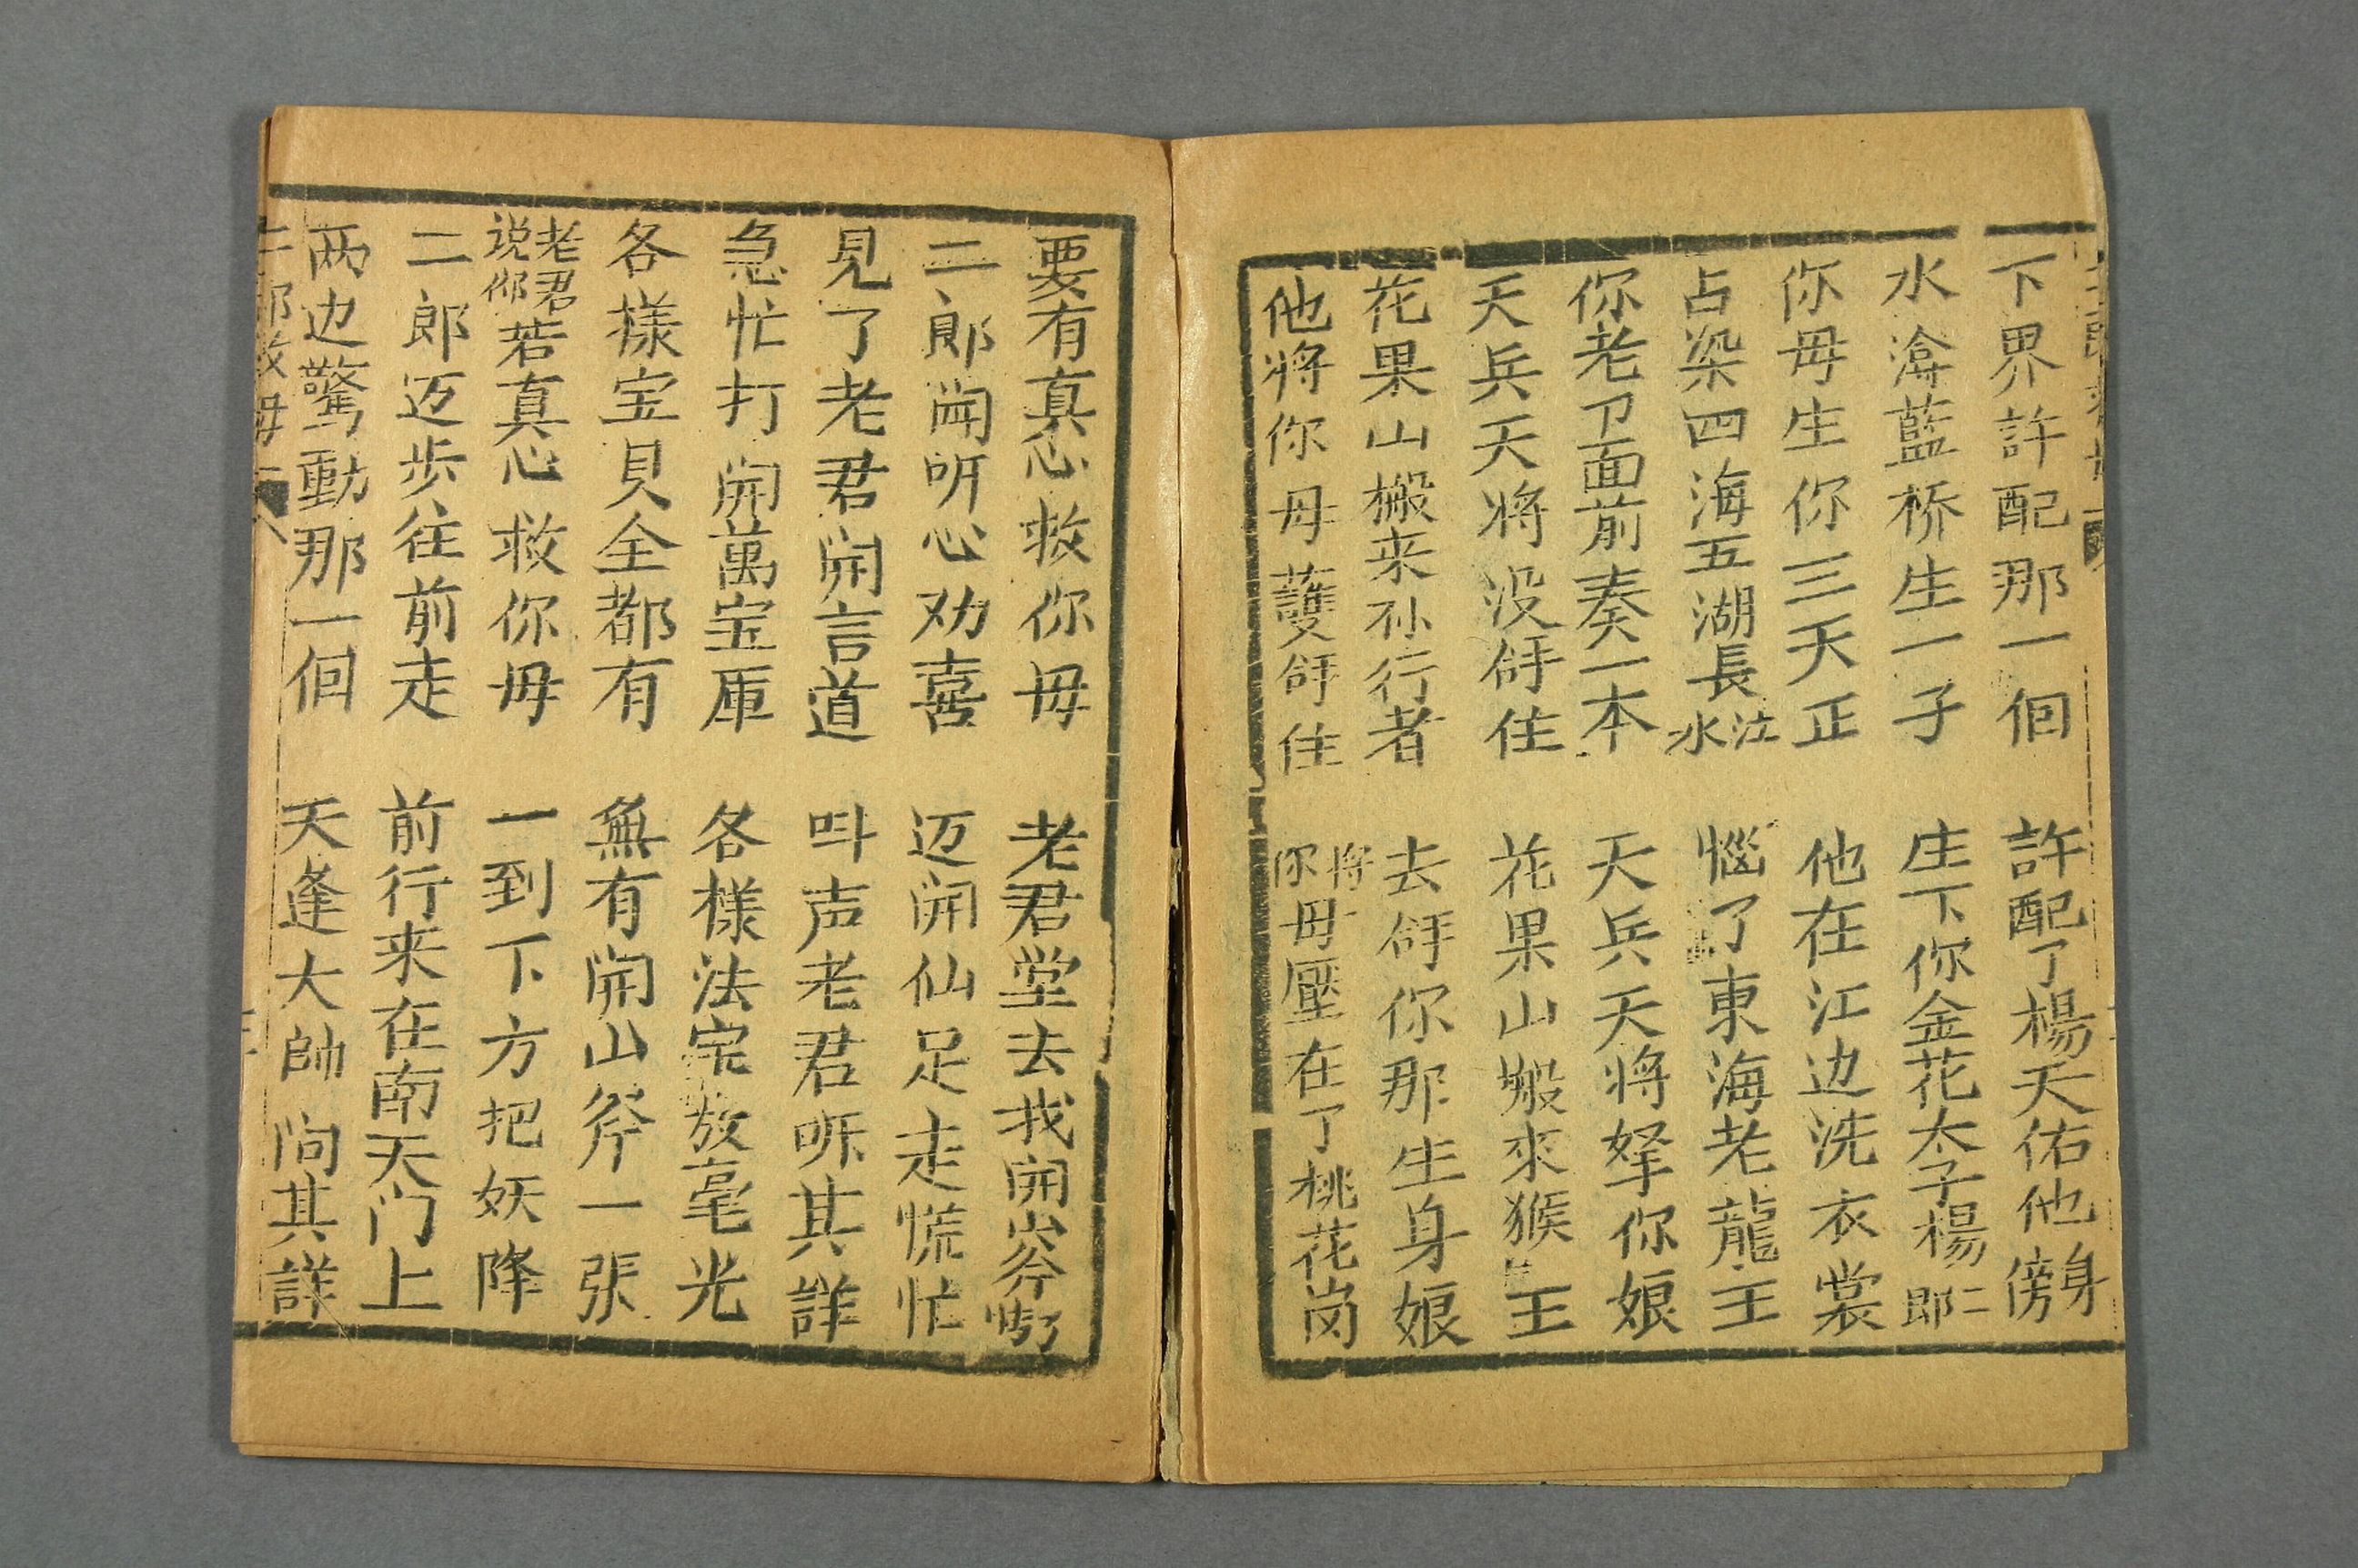 下界許配那一個 許配了楊天佑他身傍
水渰藍桥生一子 生下你金花太子楊二郎
你毋生你三天正 他在江边洗衣裳
占染四海五湖長江水 惱了東海老龍王
你老卫面前奏一本 天兵天将拏你娘
天兵天将没拿住 花果山搬來猴王
花果山搬来孙行者 去拿你那生身娘
他将你毋護拿住 将你毋壓在了桃花岗
要有真心救你毋 老君堂去找開山斧
二郎聞听心欢喜 迈開仙足走慌忙
見了老君開言道 叫声老君听其詳
急忙打開萬宝庫 各樣法宝放毫光
各樣宝貝全都有 無有開山斧一張
老君说你若真心救你毋 一到下方把妖降
二郎迈步往前走 前行来在南天门上
两边驚動那一個 天蓬大帥问其詳
二郎救毋 八